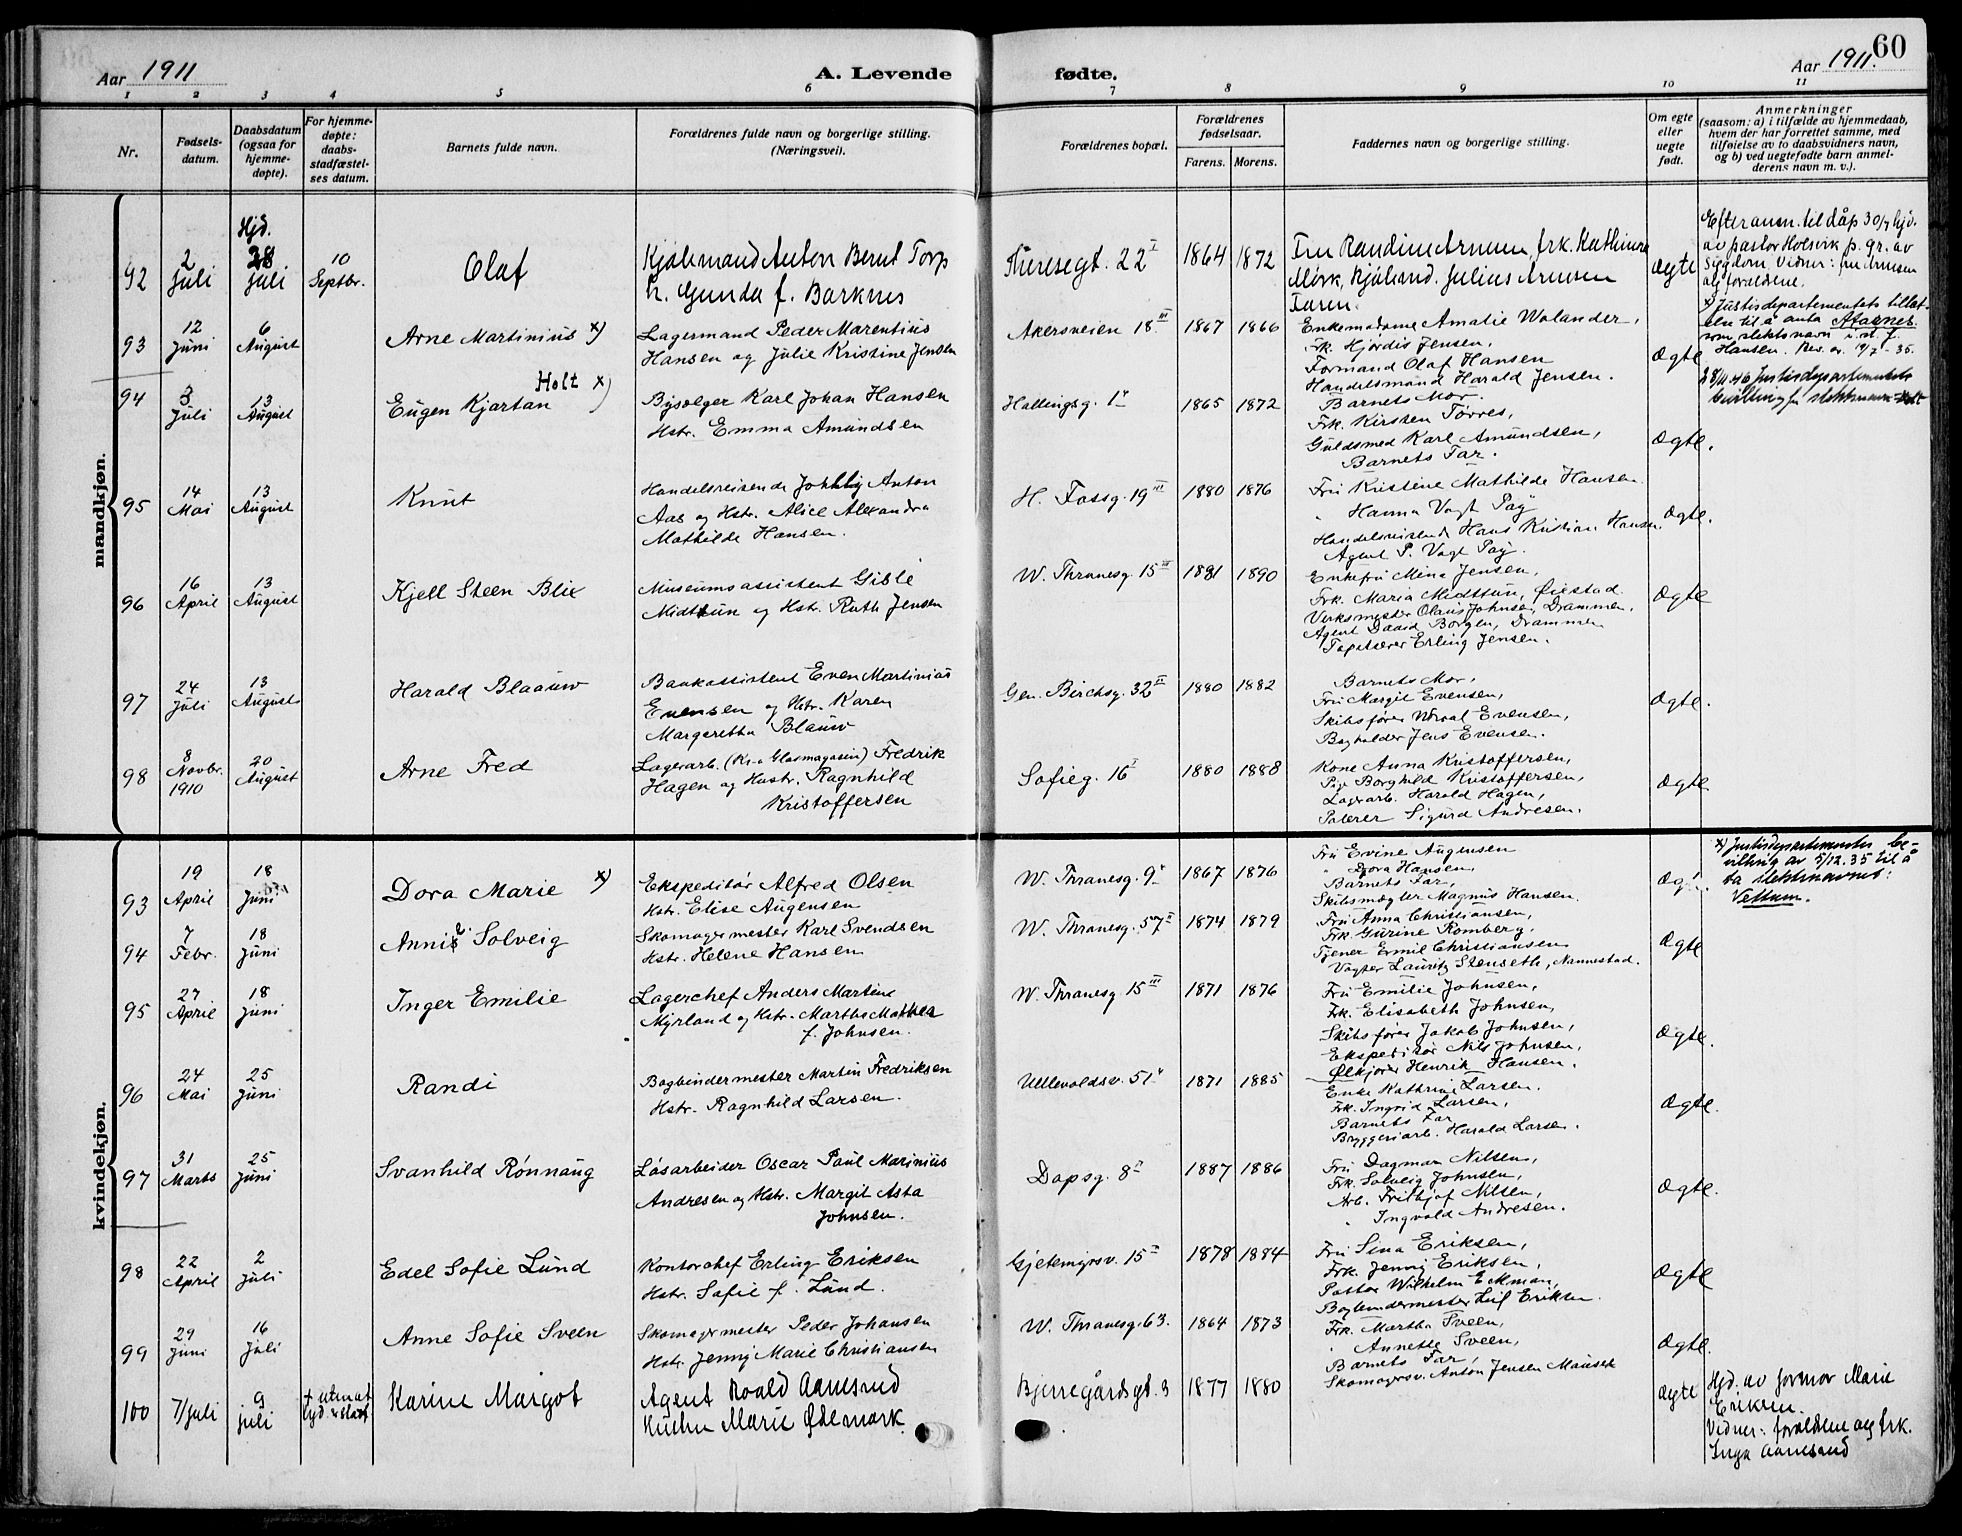 Aar 1911
A. Levende
fødte.
Aar 1911.
60
1 2 3 4 5 6 7 8 9 10 11
Nr.
Fødsels-
datum.
Daabsdatum
(ogsaa for
hjemme-
døpte).
For hjemme-
døpte:
daabs-
stadfæstel-
ses datum.
Barnets fulde navn.
Forældrenes fulde navn og borgerlige stilling.
(Næringsvei).
Forældrenes bopæl.
Forældrenes
fødselsaar.
Farens. Morens.
Faddernes navn og borgerlige stilling.
Om egte
eller
uegte
født.
Anmerkninger
(saasom: a) i tilfælde av hjemmedaab,
hvem der har forrettet samme, med
tilføielse av to daabsvidners navn,
og b) ved uegtefødte barn anmel-
derens navn m. v.).
mandkjøn.
92
2
Juli
Hjd.
28
juli
10
Septbr.
Olaf
Kjølemand Anton Bernt Torp
h. Gunda f. Barknes
Theresegt. 22 I
1864 1872
Fru Randine Arnesen, frk. Kathinca
Mørk, Kjølemd. Julius Arnesen
Faren.
Ægte
Efter anm. til dåp 30/7 hjd.
av pastor Holsvik p. gr. av
sygdom. Vidner: fru Arnesen
og forældrene.
93
12
Juni
6
August
Arne Martinius x)
Lagermand Peder Marentius
Hansen og Julie Kristine Jensen
Akersveien 18 III
1867 1866
Enkemadame Amalie Wolander,
Frk. Hjørdis Jensen,
Formand Olaf Hansen
Handelsmand Harald Jensen.
Ægte
x) Justisdepartementets tillat-
else til å anta
som slektsnavn i st. f.
Hansen. Bev. av 19/7-35.
94
3
Juli
13
August
Holt x)
Eugen Kjartan )
Bysælger Karl Johan Hansen
Hstr. Emma Amundsen
Hallingsg. 1
1865 1872
Barnets Mor.
Frk. Kirsten Tørres,
Guldsmed Karl Amundsen,
Barnets Far.
Ægte.
28/11 46 Justisdepartementets
bevilling for slektsnavn Holt
95
14
Mai
13
August
Knut
Handelsreisende Anton
Aas og Hstr. Alice Alexandra
Mathilde Hansen.
H. Fossg. 19 III
1880 1876
Fru Kristine Mathilde Hansen
" Hanna Vogt Pay
Handelsreisende Hans Kristian Hansen.
Agent P. Vogt Pay.
Ægte.
96
16
April
13
August
Kjell Steen Blix
Museumsassistent Gisle
Midttun og Hstr. Ruth Jensen
W. Thranesg. 15 III
1881 1890
Enkefru Mina Jensen,
Frk. Maria Midttun, Øiestad
Verksmester Olaus Johnsen, Drammen,
Agent David Borgen, Drammen
Tapetserer Erling Jensen.
Ægte
97
24
Juli
13
August
Harald Blaauw
Bankassistent Even Martinius
Evensen og Hstr. Karen
Margretha Blauw
Gen. Birchsg. 32 II
1880 1882
Barnets Mor,
Fru Margit Evensen,
Skibsfører Evensen,
Bogholder Jens Evensen.
Ægte.
98
8
Novbr.
1910
20
August
Arne Fred
Lagerarb. (Kr.a Glasmagasin) Fredrik
Hagen og Hustr. Ragnhild
Kristoffersen
Sofieg. 16 I
1880 1888
Kone Anna Kristoffersen,
Pige Borghild Kristoffersen,
Lagerarb. Harold Hagen,
Polerer Sigurd Andresen.
Ægte
kvindekjøn.
93
19
April
18
Juni
Dora Marie x)
Ekspeditør Alfred Olsen
Hstr. Elise Augensen
W. Thranesg. 9
1867 1876
Fru Evine Augensen
" Dora Hansen
Barnets Far,
Skibsmægler Magnus Hansen.
x) Justisdepartementets be-
villing av 5/12.35 til å
ta slektsnavnet:
Vettum.
94
7
Febr.
18
Juni
Solveig
Skomagermester Karl Svendsen
Hstr. Helene Hansen
W. Thranesg. 57 II
1874 1879
Fru Anna Christiansen,
Frk. Gurine Romberg,
Tjener Ermil Christiansen
Vogter Lauritz Stenseth, Nannestad.
Ægte
95
27
April
18
Juni
Inger Emilie
Lagerchef Anders Martin
Myrland og Hstr. Martha Mathea
f. Johnsen.
W. Thranesg. 15 III
1871 1876
Fru Emilie Johnsen,
Frk. Elisabeth Johnsen,
Skibsfører Jakob Johnsen,
Ekspeditør Nils Johnsen,
Ølkjører Henrik Hansen.
Ægte.
96
24
Mai
25
Juni
Randi
Bogbindermester Martin Fredriksen
Hstr. Ragnhild Larsen.
Ullevoldsv. 51
1871 1885
Enke Kathrine Larsen.
Frk. Ingrid Larsen,
Barnets Far
Bryggeriarb. Harald Larsen.
Ægte.
97
31
Marts
25
Juni
Svanhild Rønnaug
Løsarbeider Oscar Paul Marinius
Andresen og Hstr. Margit Asta
Johnsen.
Dopsg. 8 I
1887 1886
Fru Dagmar Nilsen,
Frk. Solveig Johnsen,
Arb. Fritbjof Nilsen,
" Ingvald Andresen.
Ægte.
98
22
April
2
Juli
Edel Sofie Lund
Kontorchef Erling Eriksen
Hstr. Sofie f. Lund.
Gjetemyrsv. 15 I
1878 1884
Fru Sina Eriksen,
Frk. Jenny Eriksen,
Pastor Wilhelm Eckman,
Bogbindermester Leif Eriksen.
Ægte
99
29
Juni
16
Juli
Anne Sofie Sveen
Skomagermester Peder Johansen
Hstr. Jenny Marie Christiansen
W. Thranesg. 63.
1864 1873
Frk. Martha Sveen,
" Annette Sveen,
Barnets Far,
Skomagersv. Anton Jensen
Ægte.
100
7/juli
9
juli
Karine Margot
Agent Roald Aamesrud
Marie Ødemark.
Bjerregårdsgt. 3
1877 1880
Ægte
Hjd. av formor Marie
Eriksen.
Vidner: forældrene og frk.
Inga Aamesrud